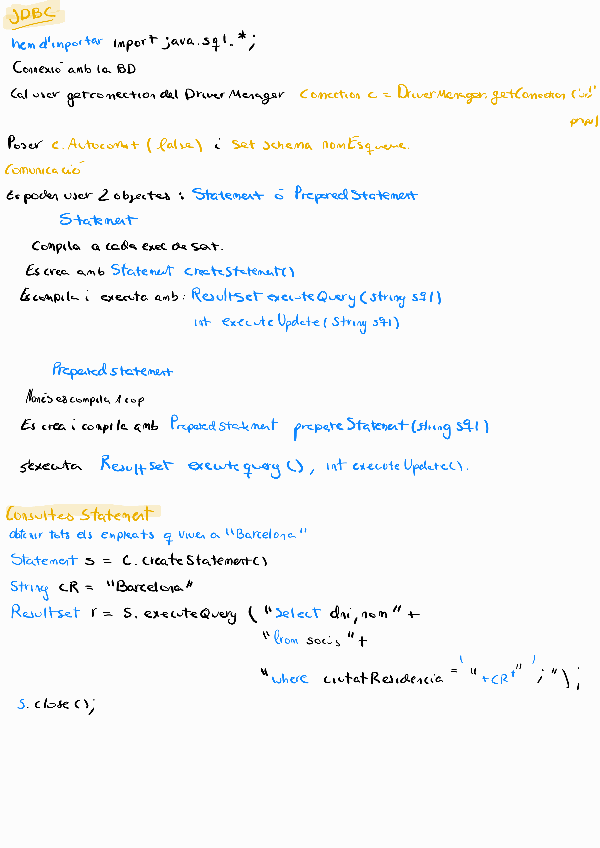 JDBC
hem d'importar import java.sql.*;
Connexió amb la BD
Cal usar getconection del Driver Manager Conection c = DriverManager.getConection ("url"
Posar c.Autocommit (false) i set schema nomEsquema.
Comunicació
Es poden usar 2 objectes: Statement o PreparedStatement
Statement
Compila a cada exec de sent.
Es crea amb Statement createStatement()
Es compila i executa amb: ResultSet executeQuery (string sql)
int executeUpdate (String sql)
Prepared statement
Només es compila 1 cop
Es crea i compila amb PreparedStatement prepareStatement (string sql)
s'executa ResultSet executequery (), int executeUpdate().
Consultes Statement
obtenir tots els empleats q viuen a "Barcelona"
Statement s = c.createStatement()
String CR = "Barcelona"
Resultset r = s.executeQuery ( "Select dni, nom" +
"from socis" +
"where ciutatResidencia = '" +CR+ "' ; " );
s.close ();